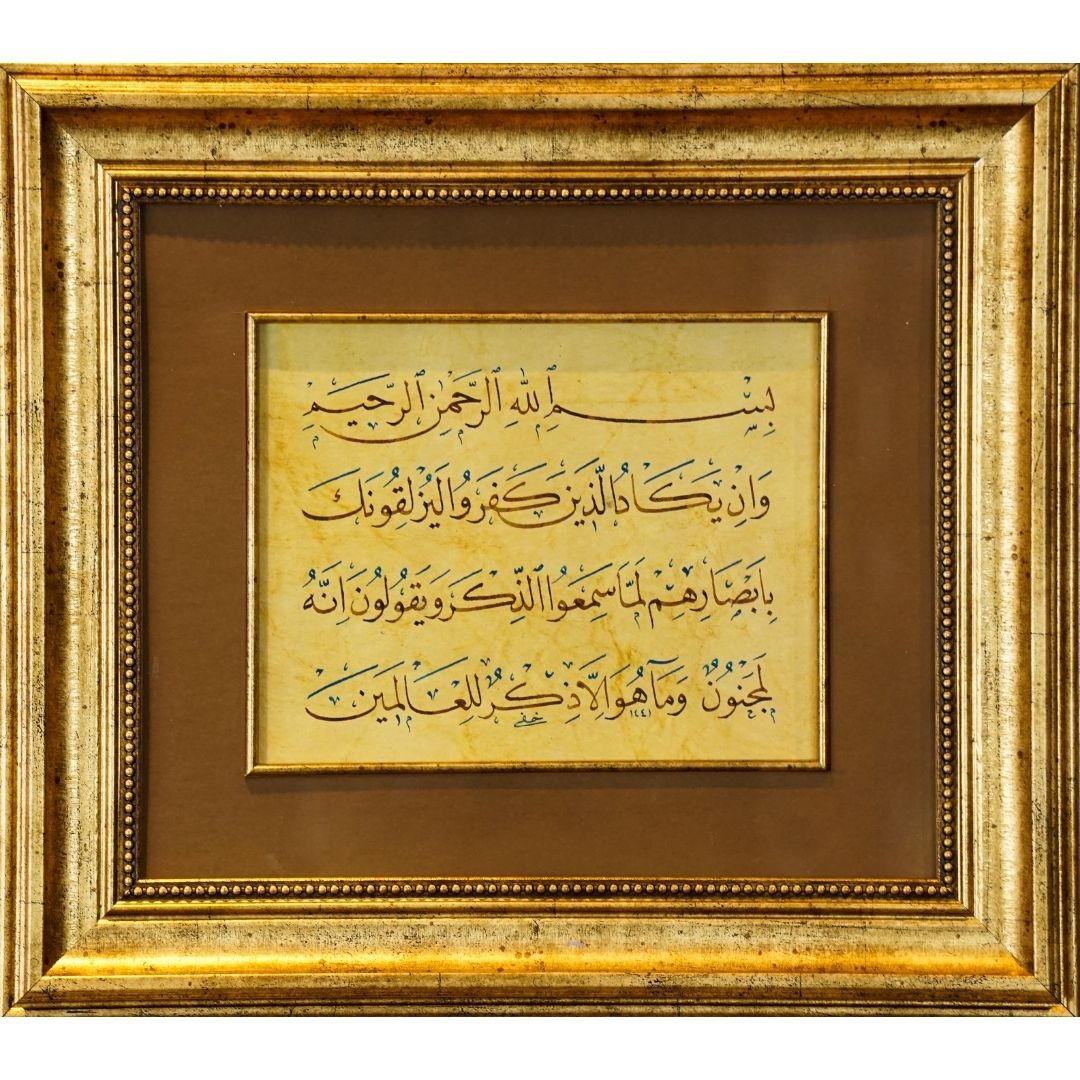 بِسْمِ ٱللهِ ٱلرَّحْمٰنِ ٱلرَّحِيمِ
وَاِنْ يَكَادُ الَّذِينَ كَفَرُوا لَيُزْلِقُونَكَ
بِاَبْصَارِهِمْ لَمَّا سَمِعُوا ٱلذِّكْرَ وَيَقُولُونَ اِنَّهُ
لَمَجْنُونٌ وَمَا هُوَ اِلَّا ذِكْرٌ لِلْعَالَمِينَ
١٤٤١